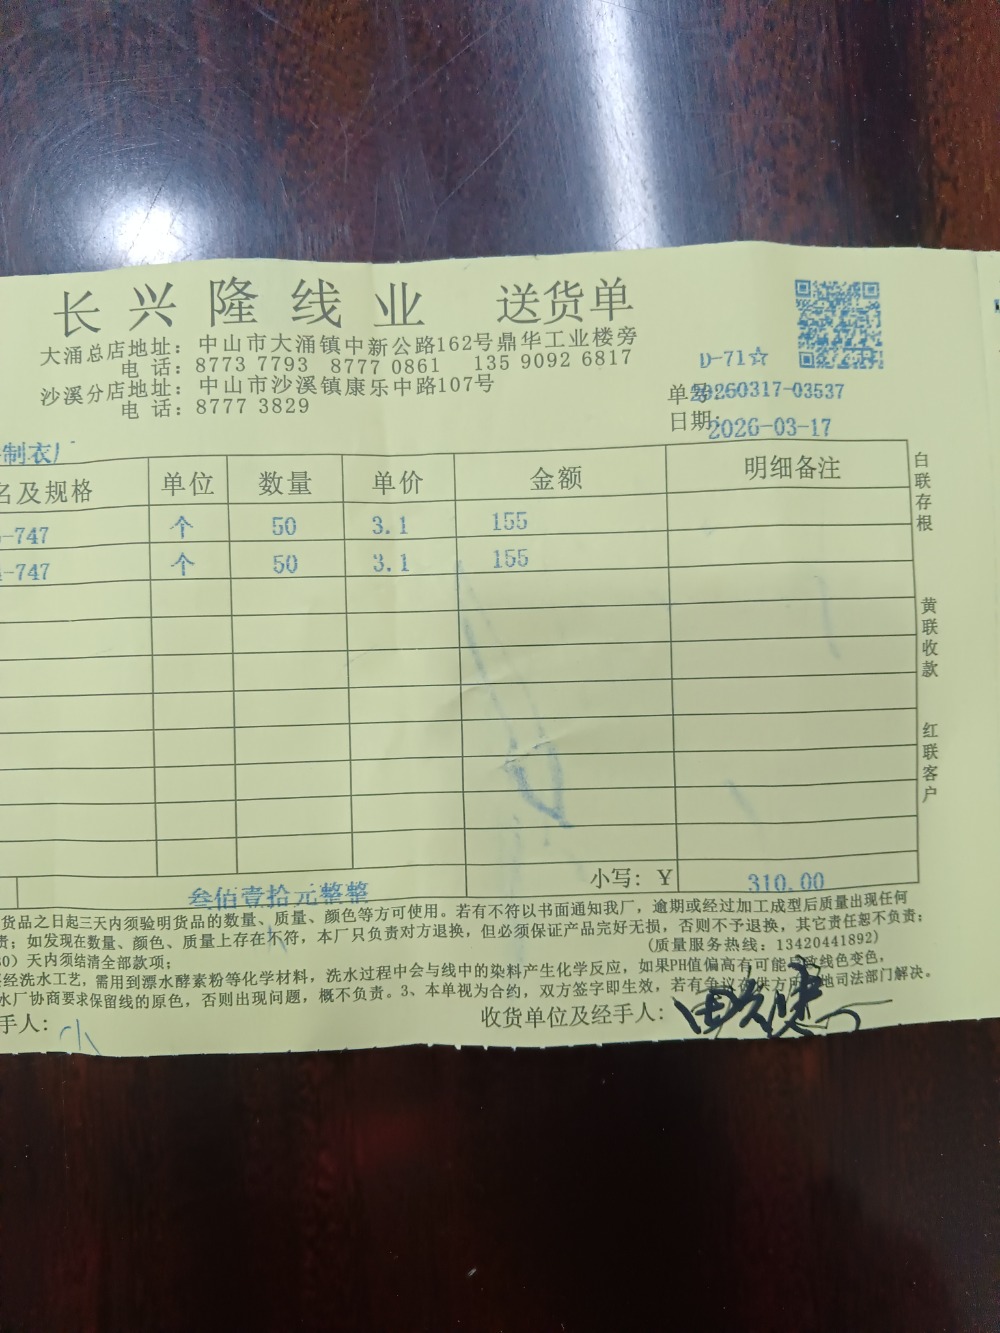 长兴隆线业 送货单
大涌总店地址：中山市大涌镇中新公路162号鼎华工业楼旁
电 话：8773 7793 8777 0861 135 9092 6817
沙溪分店地址：中山市沙溪镇康乐中路107号
电 话：8777 3829
D-71☆
单号:20260317-03537
日期:2026-03-17
制衣厂
名及规格 单位 数量 单价 金额 明细备注
-747 个 50 3.1 155
-747 个 50 3.1 155
白联存根
黄联收款
红联客户
叁佰壹拾元整整 小写：¥ 310.00
货品之日起三天内须验明货品的数量、质量、颜色等方可使用。若有不符以书面通知我厂，逾期或经过加工成型后质量出现任何
责；如发现在数量、颜色、质量上存在不符，本厂只负责对方退换，但必须保证产品完好无损，否则不予退换，其它责任恕不负责；
0）天内须结清全部款项； (质量服务热线：13420441892)
经洗水工艺，需用到漂水酵素粉等化学材料，洗水过程中会与线中的染料产生化学反应，如果PH值偏高有可能导致线色变色，
水厂协商要求保留线的原色，否则出现问题，概不负责。3、本单视为合约，双方签字即生效，若有争议在供方所在地司法部门解决。
手人： 收货单位及经手人：